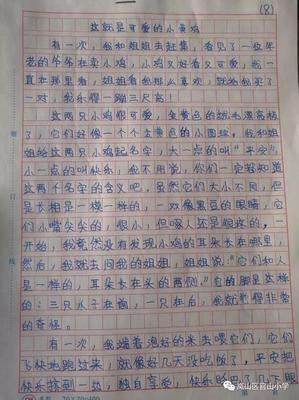 (8)
这就是可爱的小黄鸡
有一次,我和姐姐去赶集,看见了一位年
老的爷爷在卖小鸡,小鸡又好看又可爱,我一
直在那里看,姐姐看我那么喜欢,就给我买了
一对,我乐得一蹦三尺高!
这两只小鸡很可爱,金黄色的绒毛漂亮极
了,它们好像一个个金黄色的小圆球,我和姐
姐给这两只小鸡起名字,大一点的叫“平安”,
小一点的叫快乐,我不用说,你们一定都知道
这两个名字的含义吧。虽然它们大小不同,但
是长相是一模一样的,一对像黑豆的眼睛,它
们小嘴尖尖的,很小,但啄人还是很疼的。一
开始,我竟然没有发现小鸡的耳朵长在哪里,
然后,我就去问我的姐姐,姐姐说:“它们和人
是一样的,耳朵长在头的两侧。”它的脚是这样
的:三只爪子在前,一只在后,我就觉得非常
的奇怪。
有一次,我端着泡好的米去喂它们,它们
飞快地跑过来,就像好几天没吃饭了,平安把
快乐挤到一边,独自享受,快乐眨巴了几下眼
20×20=400
岚山区官山小学